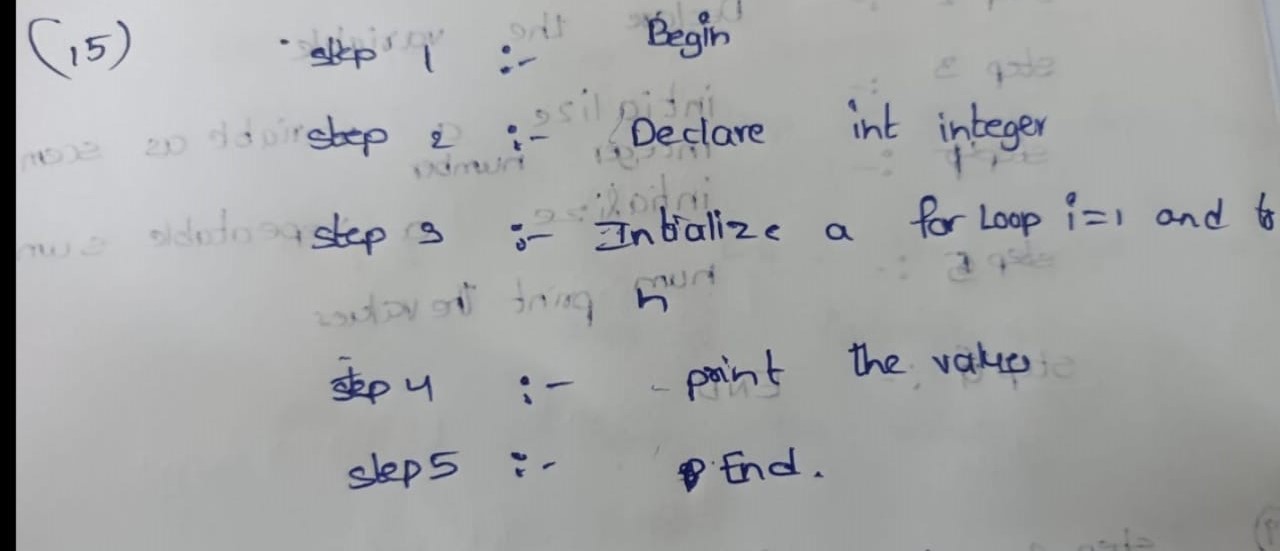 (15) step 1 :- Begin
step 2 :- Declare int integer
step 3 :- Initialize a for Loop i=1 and to
n
step 4 :- print the value
step 5 :- End.